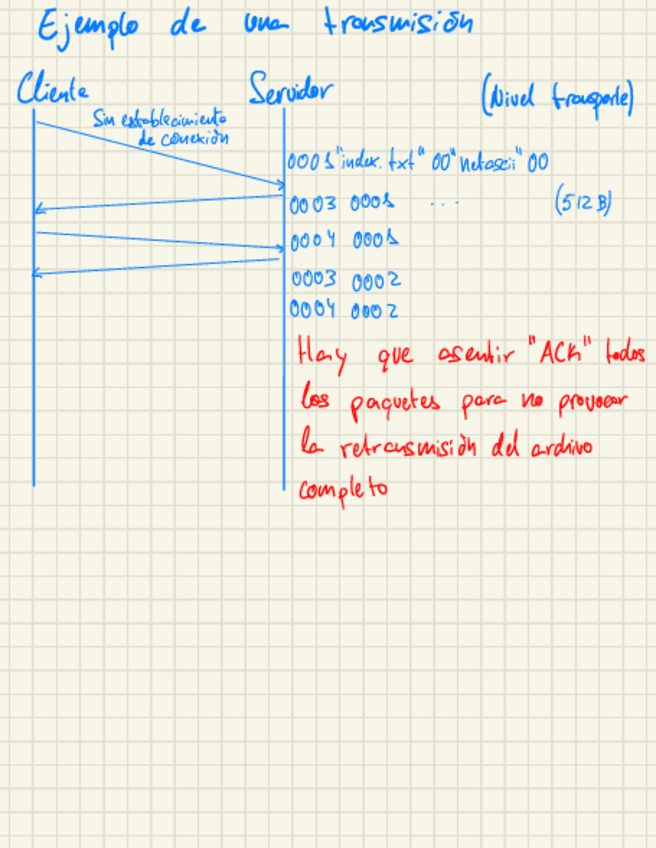 Ejemplo de una transmisión
Cliente
Servidor
(Nivel transporte)
Sin establecimiento
de conexión
0001 "index.txt" 00 "netascii" 00
0003 0001 ... (512 B)
0004 0001
0003 0002
0004 0002
Hay que asentir "ACK" todos
los paquetes para no provocar
la retransmisión del archivo
completo